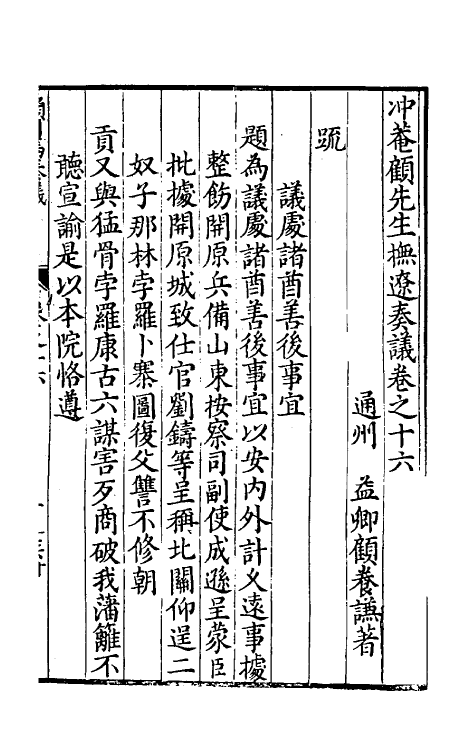 冲菴顧先生撫遼奏議卷之十六
通州　益卿顧養謙著
䟽
議處諸酋善後事宜
題為議處諸酋善後事宜以安內外計乂遠事據
整飭開原兵備山東按察司副使成遜呈蒙臣
批據開原城致仕官劉鑄等呈稱北關仰逞二
奴子那林孛羅卜寨圖復父讐不修朝
貢又與猛骨孛羅康古六謀害歹商破我藩籬不
聽宣諭是以本院恪遵